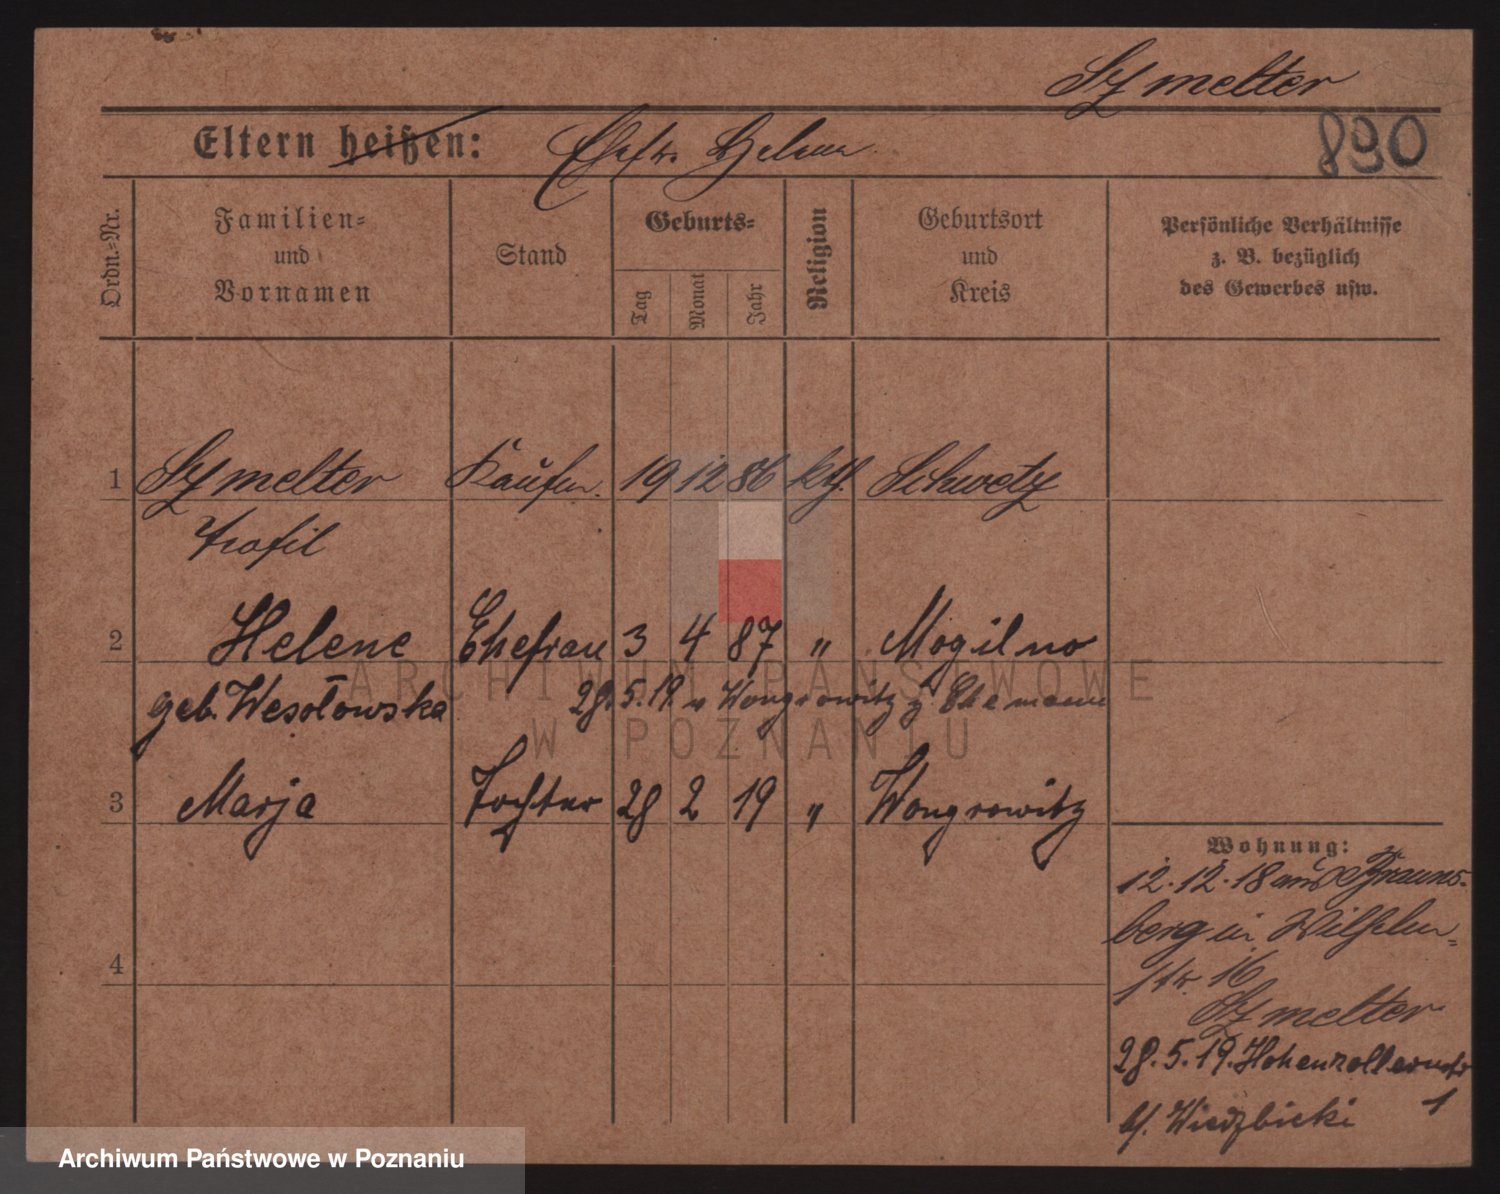 Szmelter
Eltern heißen: Ehefr. Helene
890
Ordn.-Nr.
Familien-
und
Vornamen
Stand
Geburts-
Tag
Monat
Jahr
Religion
Geburtsort
und
Kreis
Persönliche Verhältnisse
z. B. bezüglich
des Gewerbes usw.
1 Szmelter Kaufm. 19 12 86 kth. Schwetz
2 Helene Ehefrau 3 4 87 " Mogilno
geb. Wesołowska 28.5.19 v Wongrowitz z Ehemann
3 Marja Tochter 28 2 19 " Wongrowitz
4
Wohnung:
12.12.18 aus Brauns-
berg in Wilhelm-
str. 16
Szmelter
28.5.19. Hohenzollernstr
1
b/. Wiedzbicki
ARCHIWUM PAŃSTWOWE
W POZNANIU
Archiwum Państwowe w Poznaniu